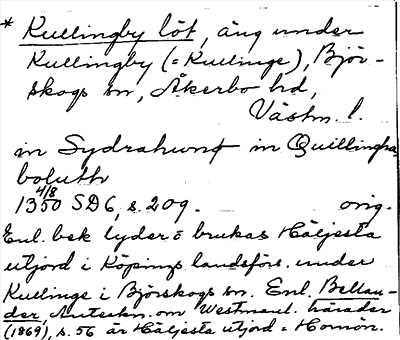 * Kullingby löt, äng under
Kullingby (= Kullinge), Björ-
skogs sn, Åkerbo hd,
Västm. l.
in Sydrahwnt in Quillingha
boluth
4/8
1350 SD6, s. 209. orig.
Enl. bek lyder o brukas Häljesta
utjord i Köpings landsförs. under
Kullinge i Björskogs sn. Enl. Bellan-
der, Anteckn. om Westmanl. härader
(1869), s. 56 är Häljesta utjord = Homön.